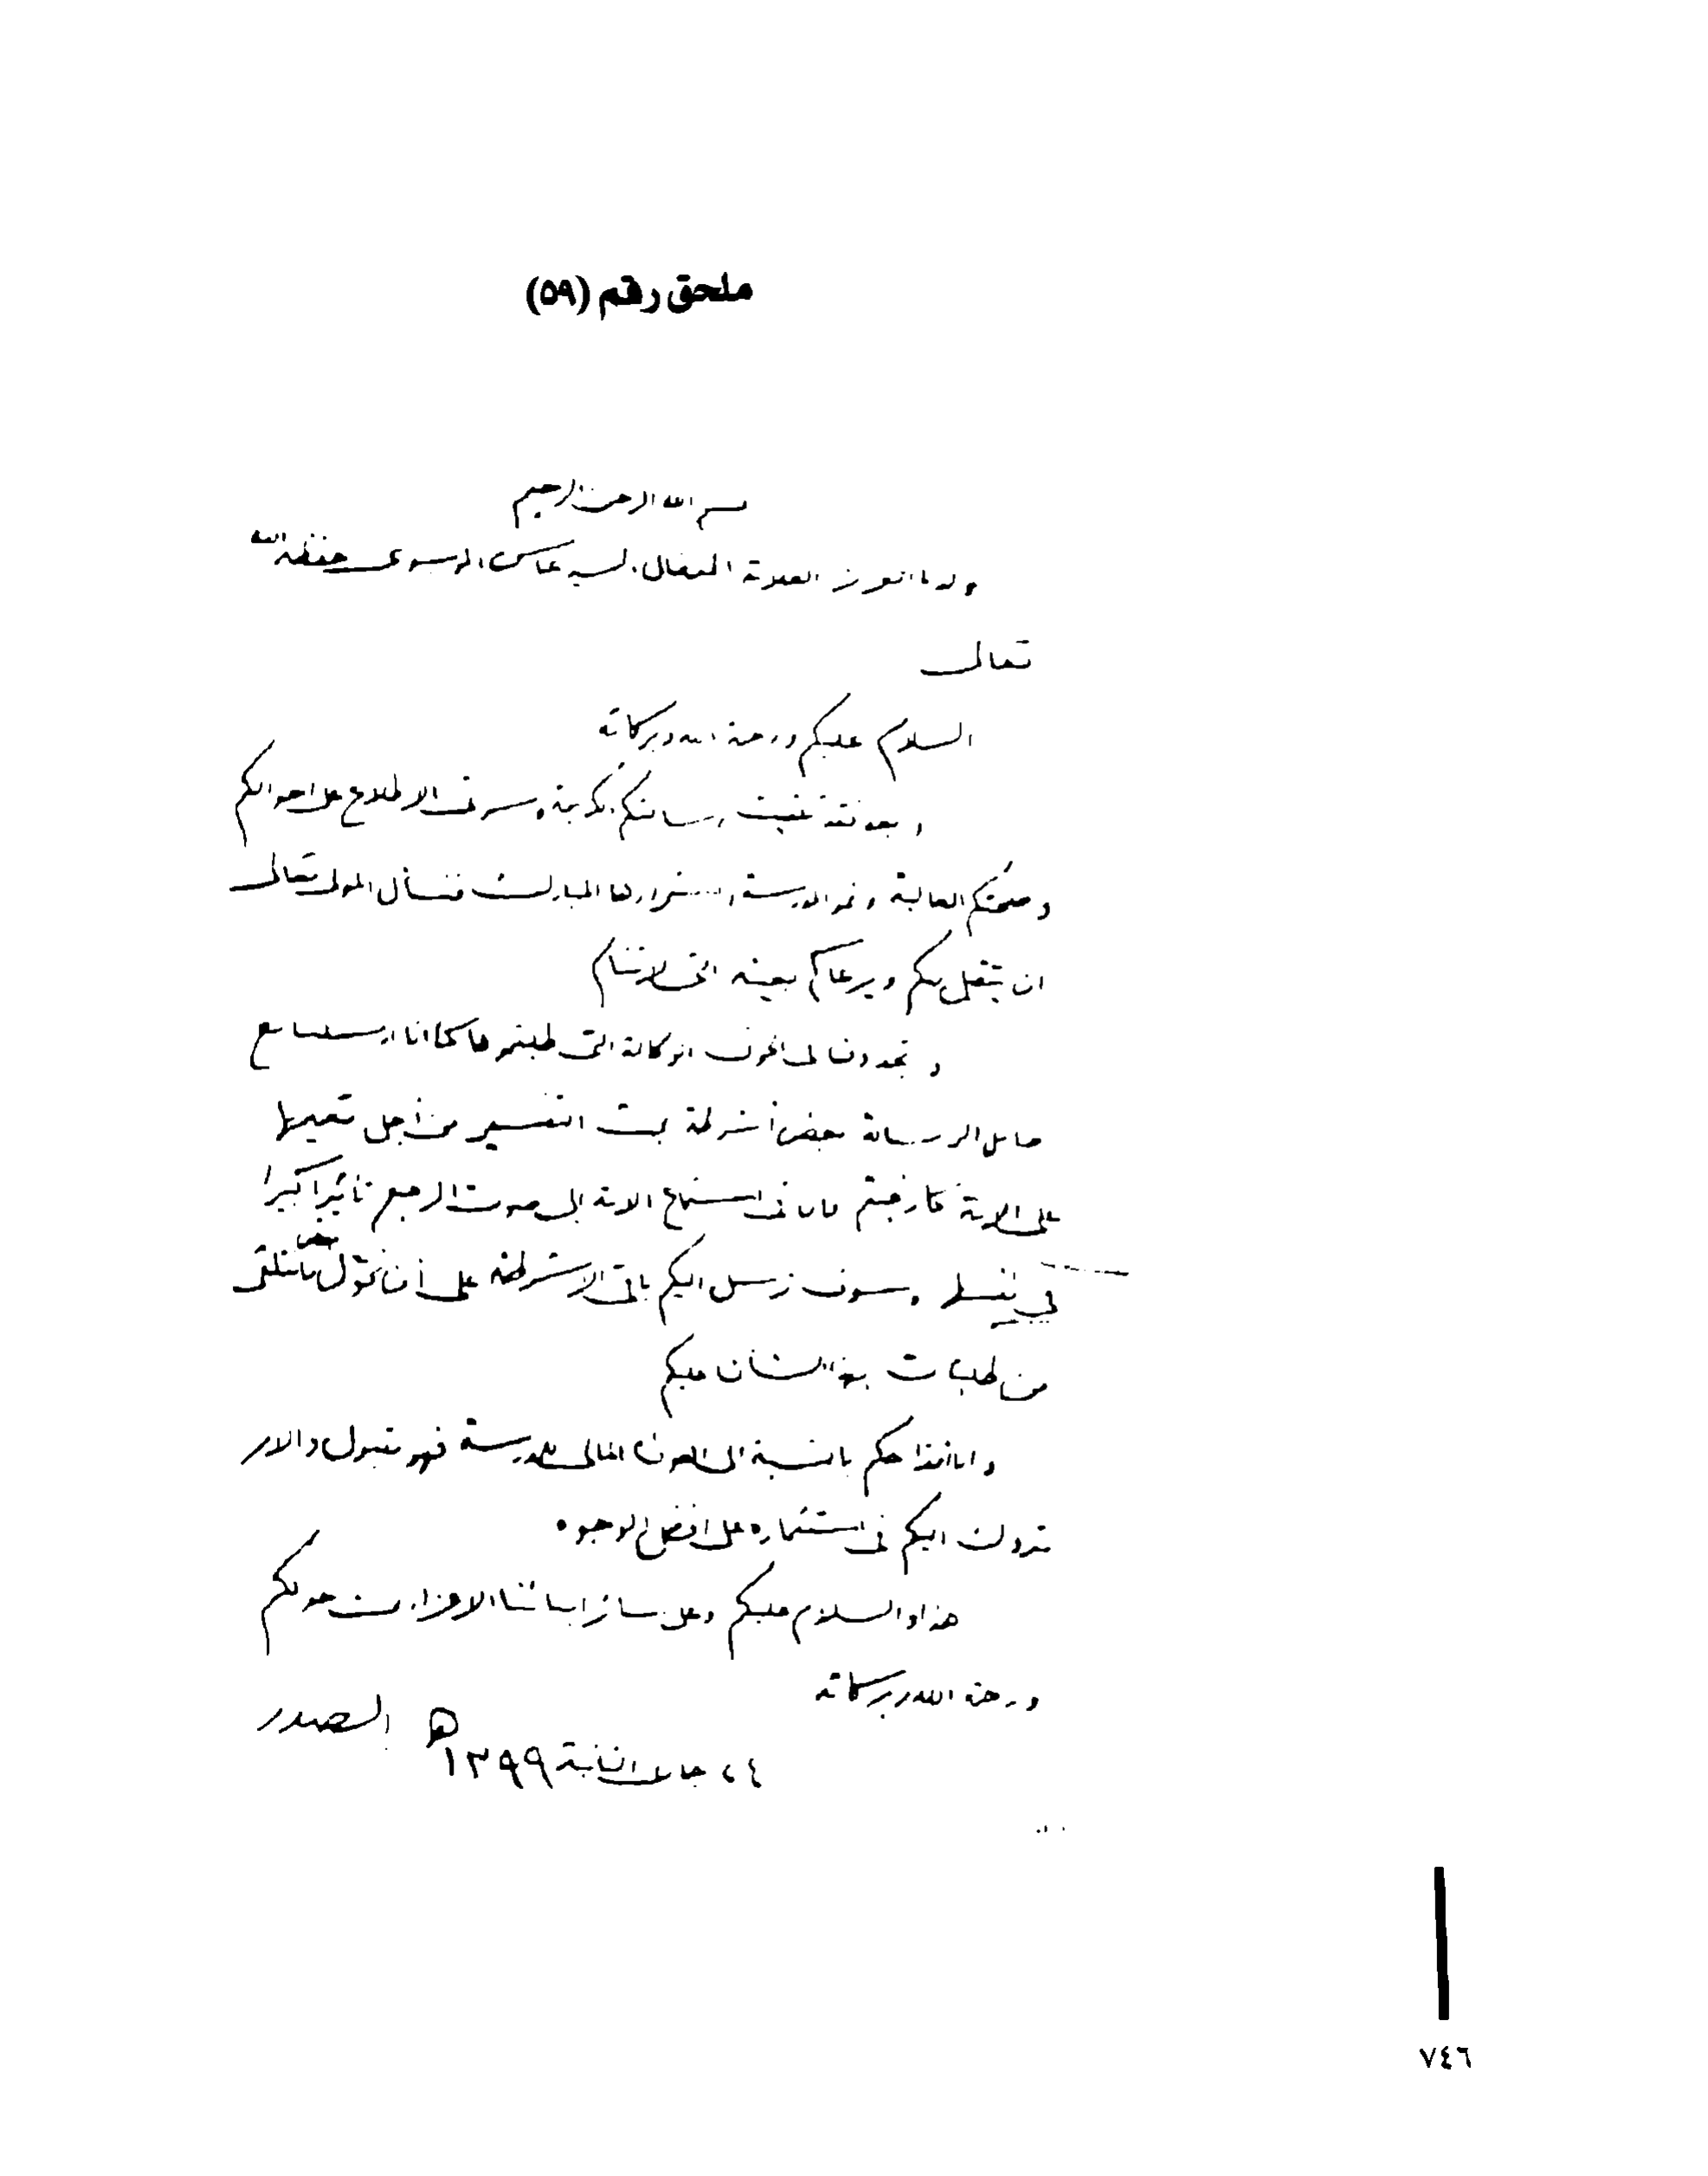 ملحق رقم (٥٩)
بسم الله الرحمن الرحيم
ولدنا العزيز العلامة المفضال السيد عباس الموسوي حفظه الله
تعالى
السلام عليكم ورحمة الله وبركاته
وبعد فقد تلقيت رسالتكم الكريمة وسرني الاطلاع على احوالكم
وصحتكم الغالية ونمو المدرسة واستمرارها المبارك فنسأل المولى تعالى
ان يتقبل بكم ويرعاكم بعينه التي لا تنام
وتجدون الوكالة التي طلبتموها كما انا ارسلنا مع
حامل الرسالة بعض أشرطة بحث التفسير من أجل تعميمها
على الامة كما رغبتم فان في استماع الامة إلى صوت المرجع تأثيرا كبيرا
في وسوف نرسل اليكم باقي الاشرطة على أن نحول بعض ما نتلقى
من طلبات بهذا الشأن عليكم
واما اقتراحكم بالنسبة الى العون المالي للمدرسة فهو مقبول والامر
متروك اليكم في استثماره على افضل الوجوه
هذا والسلام عليكم وعلى سائر ابنائنا الاعزاء من حولكم
ورحمة الله وبركاته
٢٤ جمادى الثانية ١٣٩٩ هـ الصدر
٧٤٦